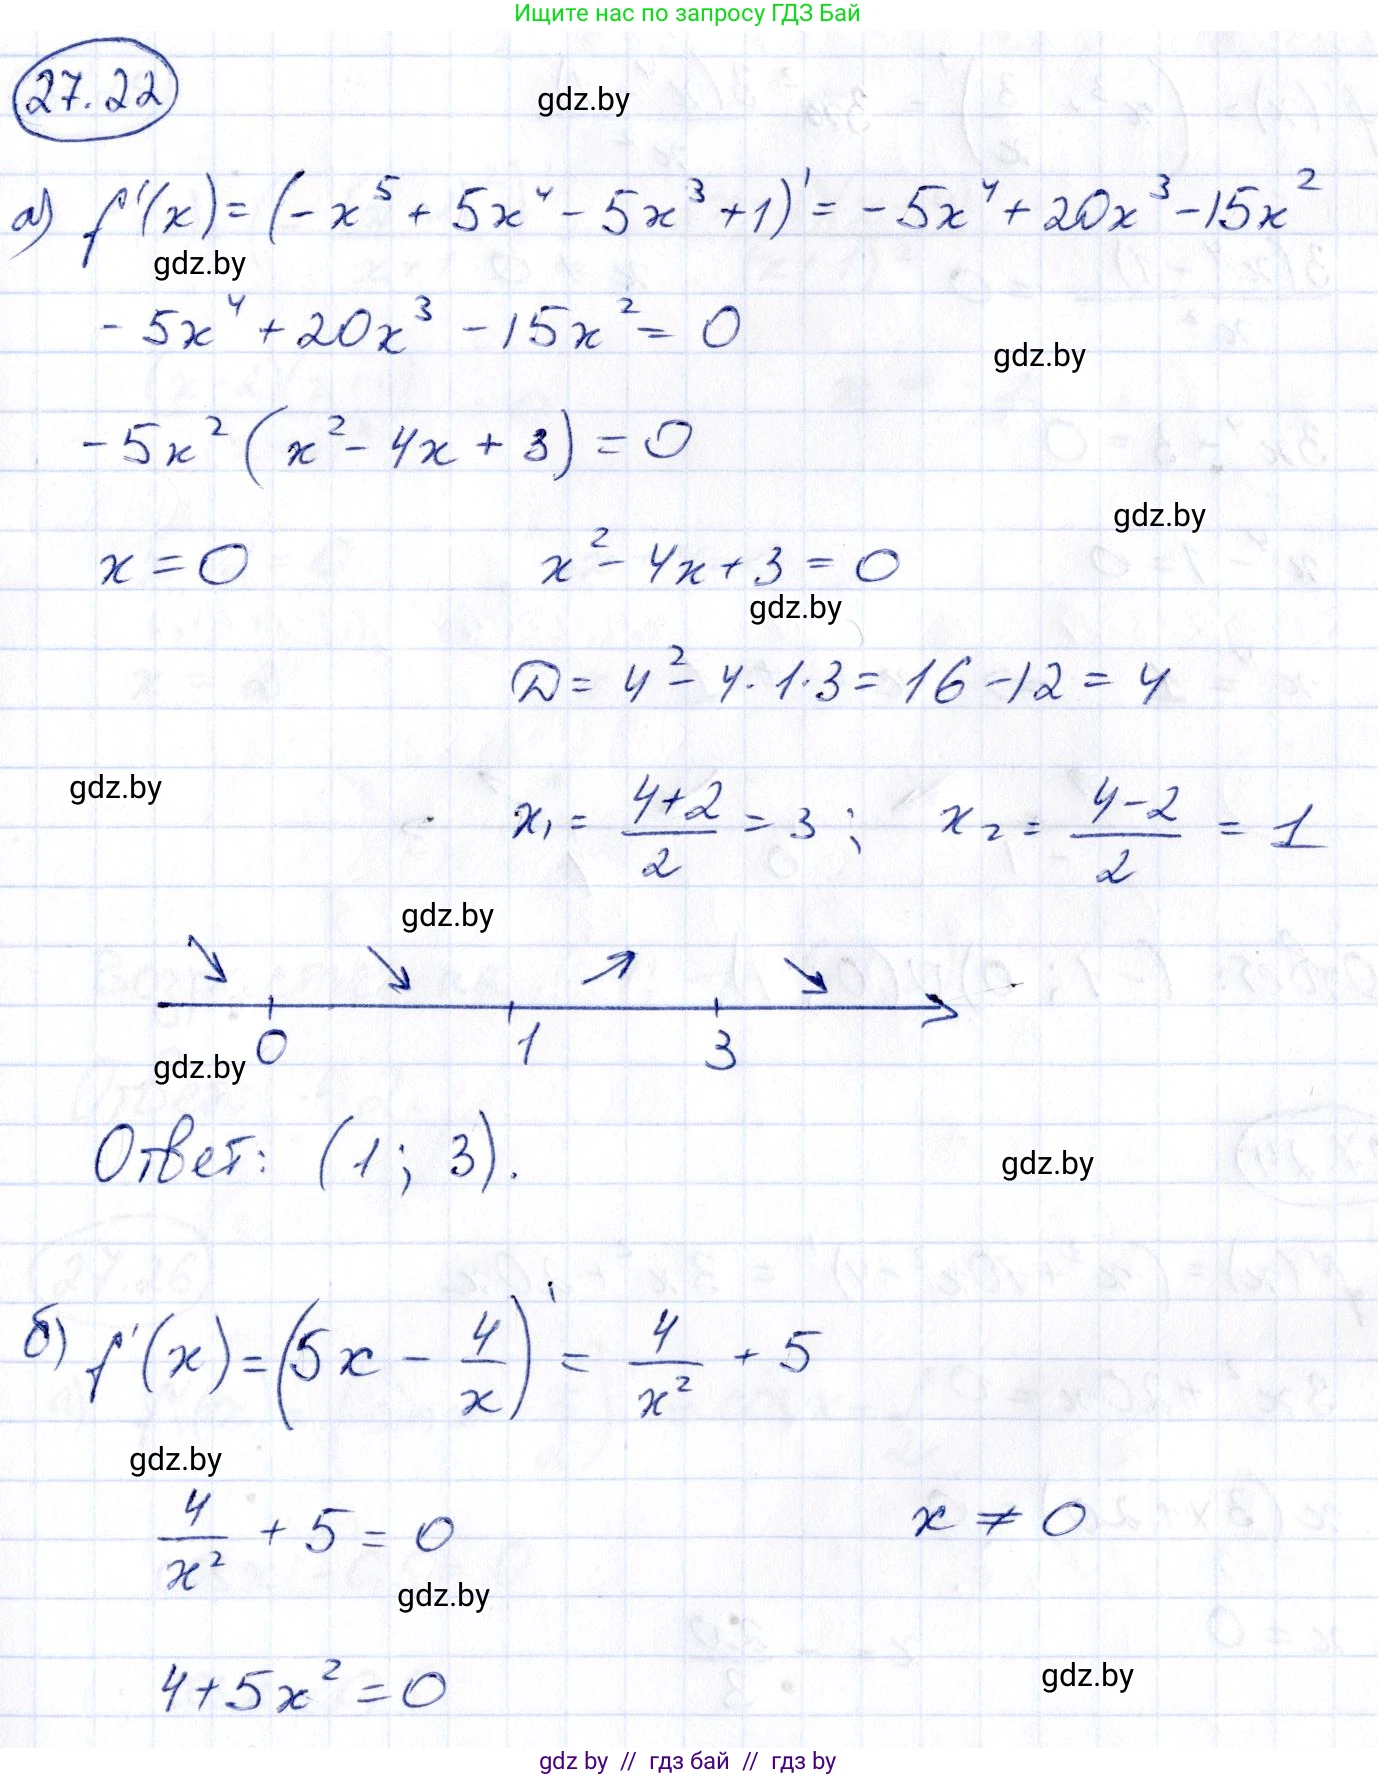 Ищите нас по запросу ГДЗ Бай
27.22
gdz.by
а) f'(x) = (-x⁵ + 5x⁴ - 5x³ + 1)' = -5x⁴ + 20x³ - 15x²
gdz.by
-5x⁴ + 20x³ - 15x² = 0
gdz.by
-5x² (x² - 4x + 3) = 0
gdz.by
x = 0 x² - 4x + 3 = 0
gdz.by
D = 4² - 4·1·3 = 16 - 12 = 4
gdz.by
x₁ = (4+2)/2 = 3; x₂ = (4-2)/2 = 1
gdz.by
0 1 3
gdz.by
Ответ: (1; 3).
gdz.by
б) f'(x) = (5x - 4/x)' = 4/x² + 5
gdz.by
4/x² + 5 = 0 x ≠ 0
gdz.by
4 + 5x² = 0
gdz.by
gdz by // гдз бай // гдз by